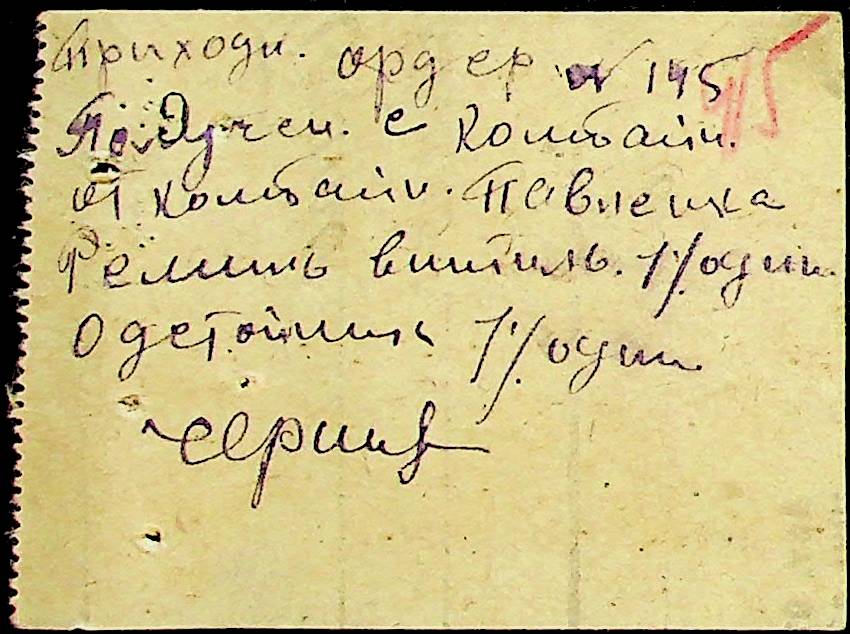 Приходн. ордер № 145
Получен. с комбайн.
от комбайн. Павленка
Ремень вентиль. 1/один.
Одстойник 1/один